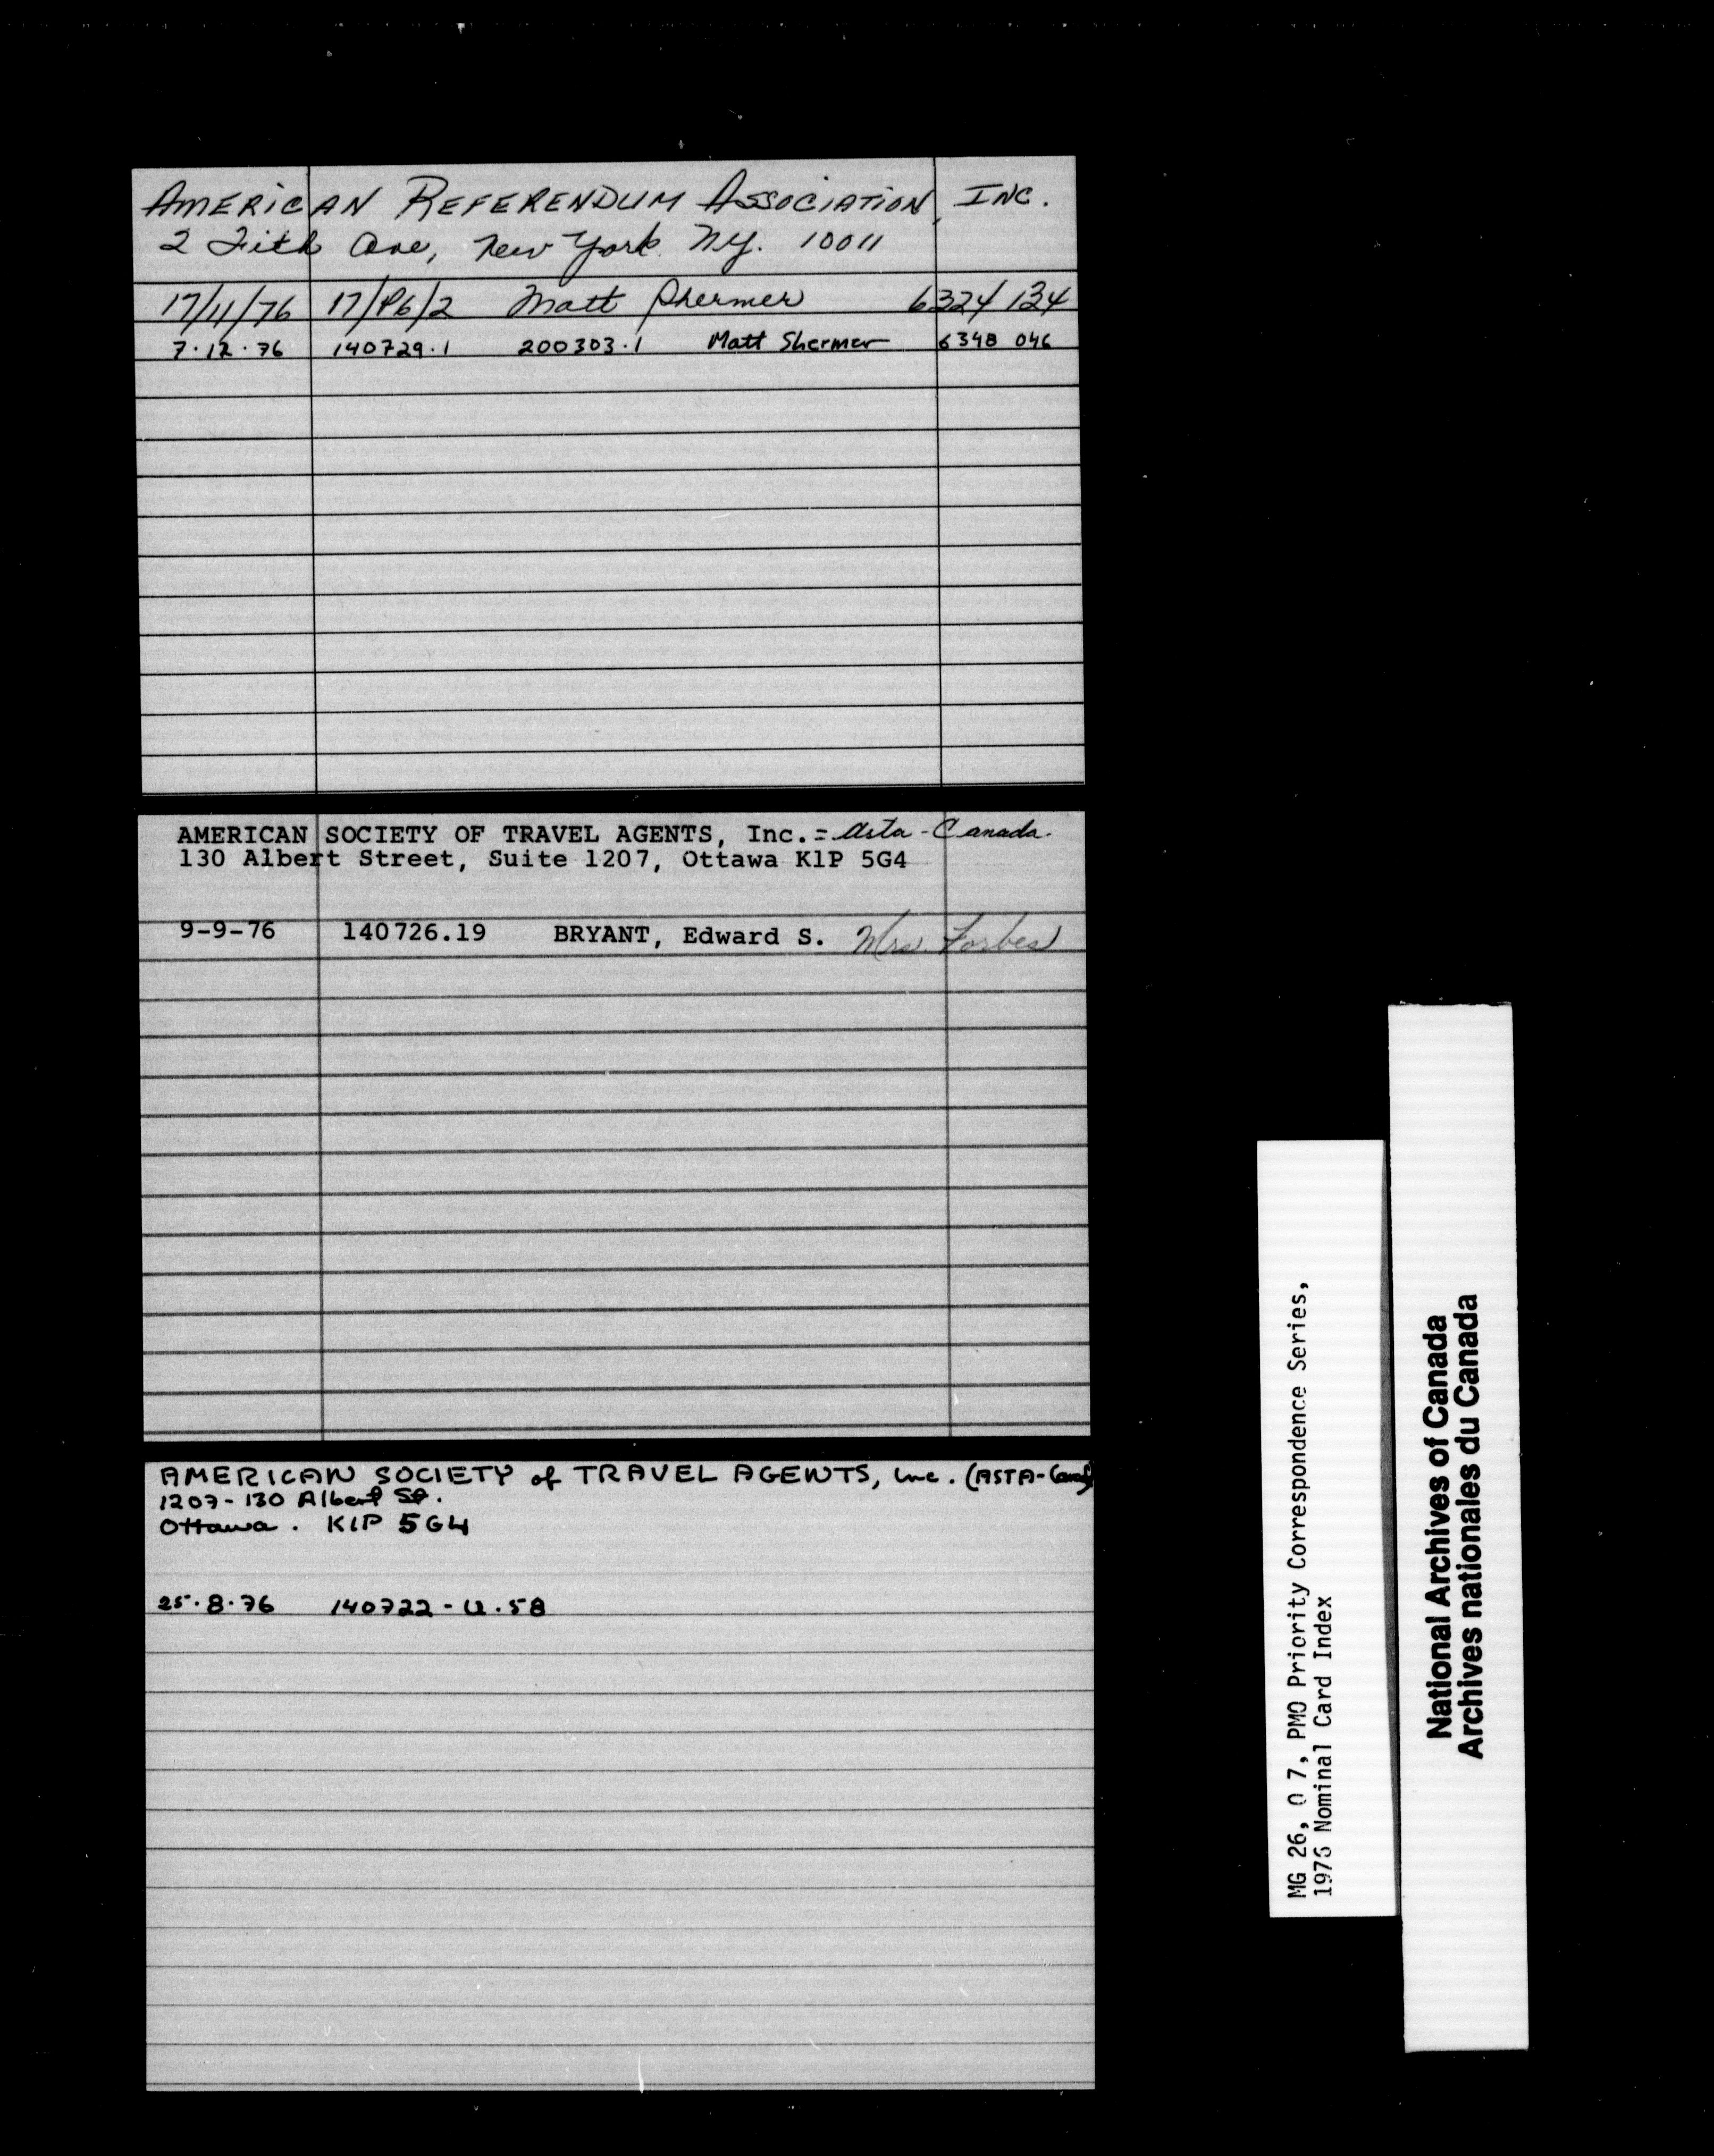 AMERICAN REFERENDUM ASSOCIATION, INC.
2 Fith Ave, New York. N.Y. 10011
17/11/76 17/P6/2 Matt Shermer 6324 134
7.12.76 140729.1 200303.1 Matt Shermer 6348 046
AMERICAN SOCIETY OF TRAVEL AGENTS, Inc. = Asta-Canada.
130 Albert Street, Suite 1207, Ottawa K1P 5G4
9-9-76 140726.19 BRYANT, Edward S. Mrs. Forbes
AMERICAN SOCIETY of TRAVEL AGENTS, Inc. (ASTA-Canada)
1207-130 Albert St.
Ottawa. K1P 5G4
25.8.76 140722-U.58
MG 26, O 7, PMO Priority Correspondence Series,
1976 Nominal Card Index
National Archives of Canada
Archives nationales du Canada